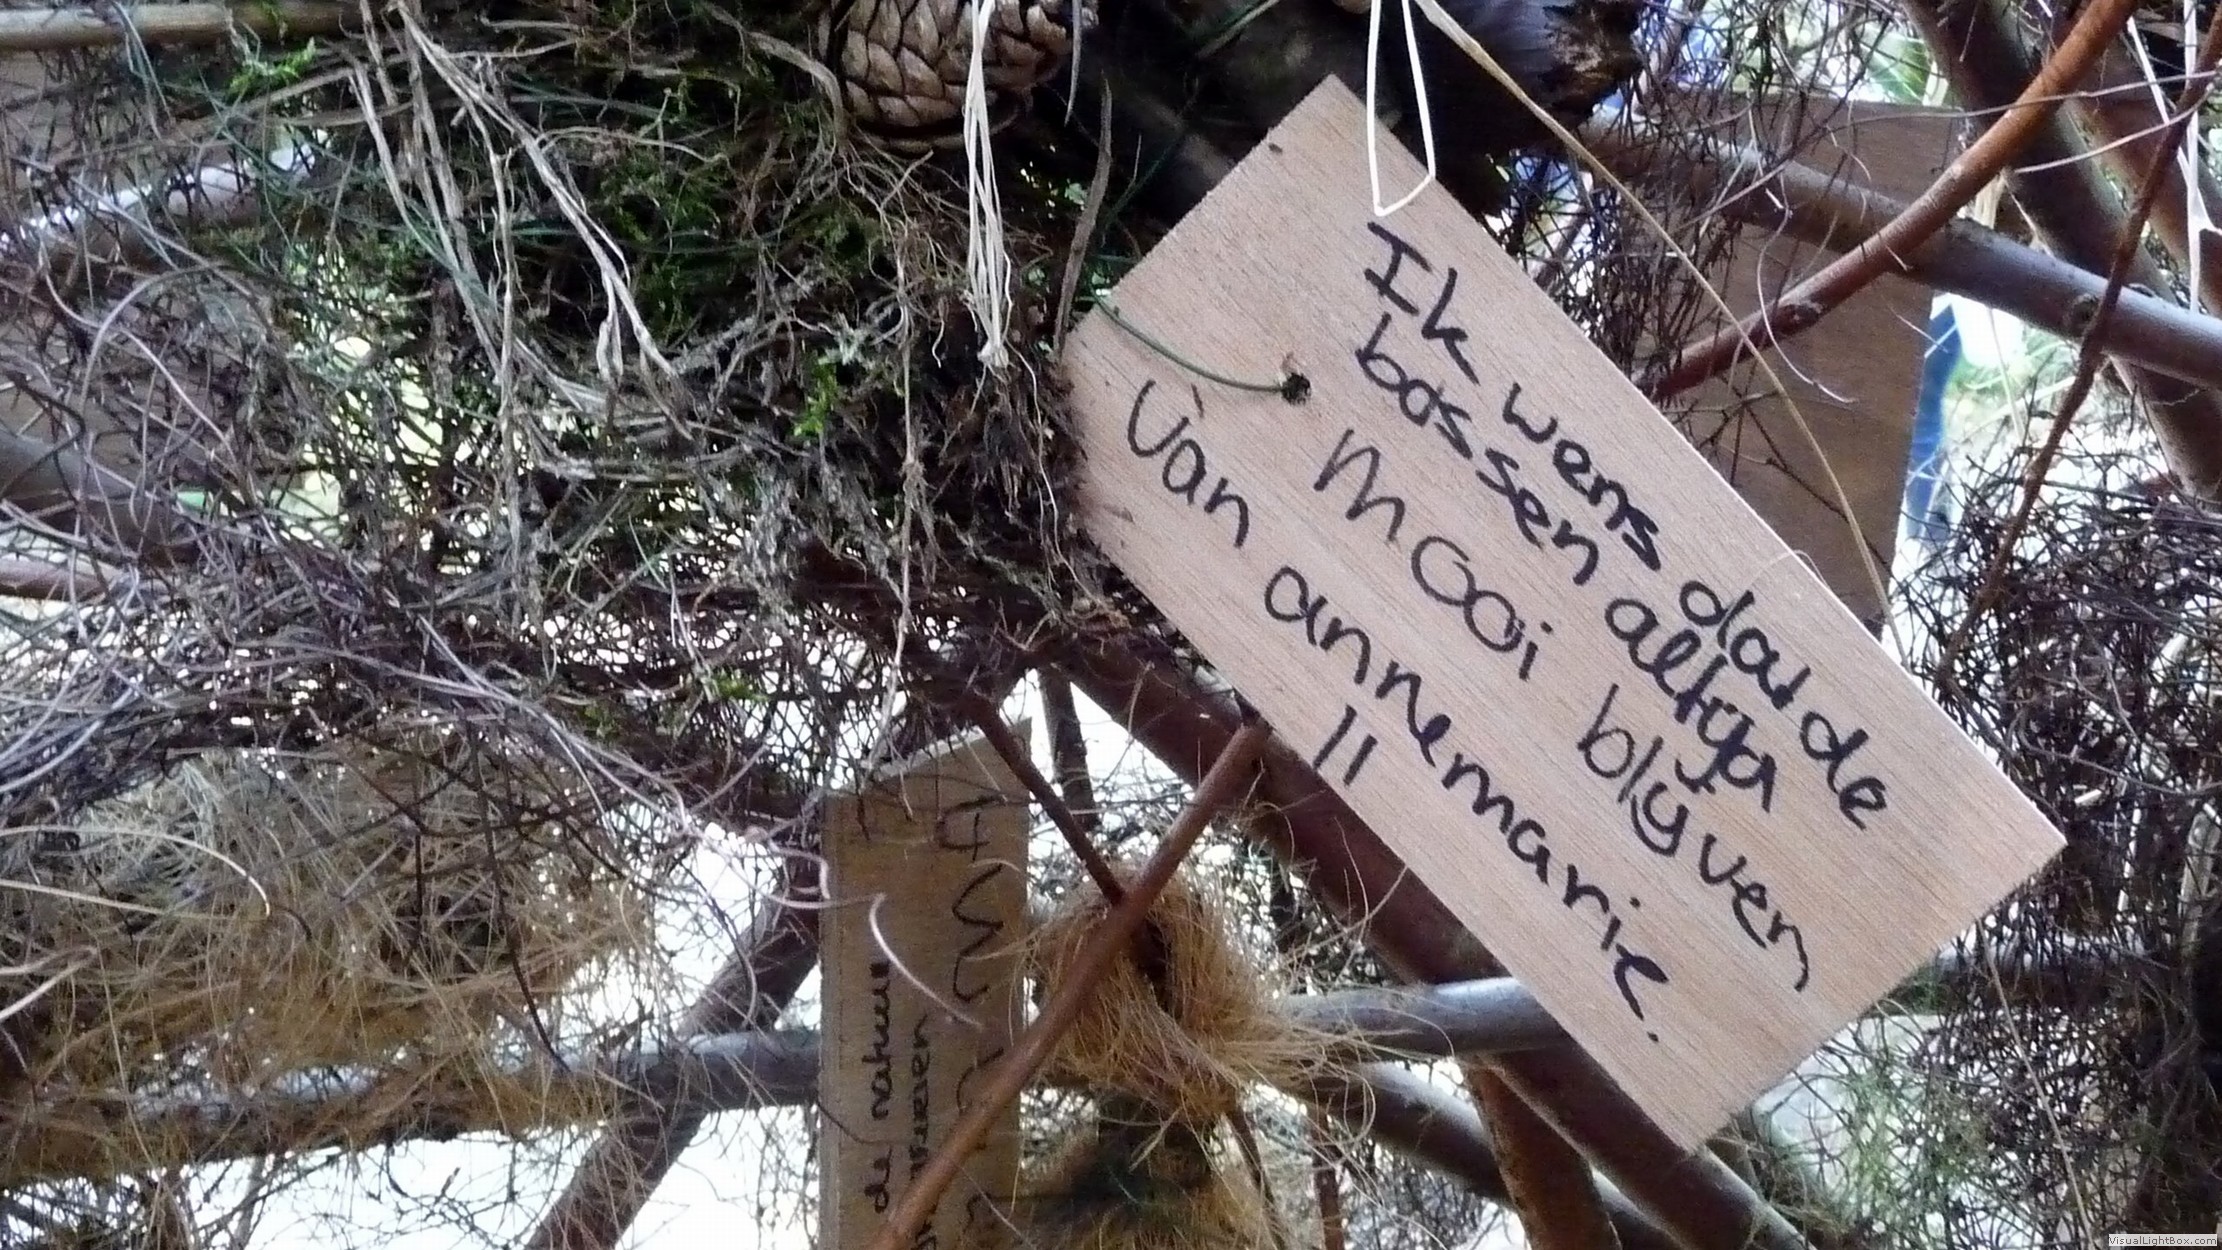 Ik wens dat de
bossen altyd
mooi blyven
Van annemarie.
11
de natuur
VisualLightBox.com